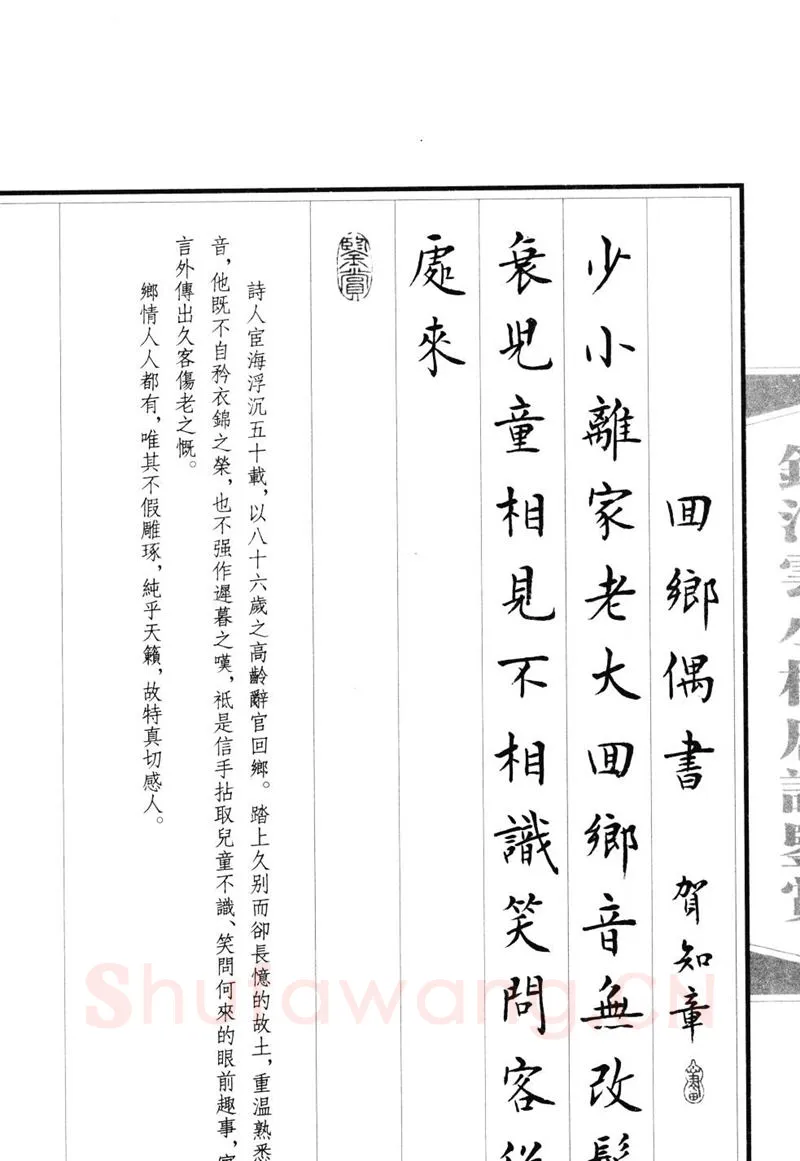 囬鄉偶書 賀知章
少小離家老大囬鄉音無改
衰兒童相見不相識笑問客
處來
鑒賞
詩人宦海浮沉五十載，以八十六歲之高齡辭官回鄉。踏上久别而卻長憶的故土，重溫熟悉
音，他既不自矜衣錦之榮，也不强作遲暮之嘆，衹是信手拈取兒童不識、笑問何來的眼前趣事，
言外傳出久客傷老之慨。
鄉情人人都有，唯其不假雕琢，純乎天籟，故特真切感人。
Shufawang.CN